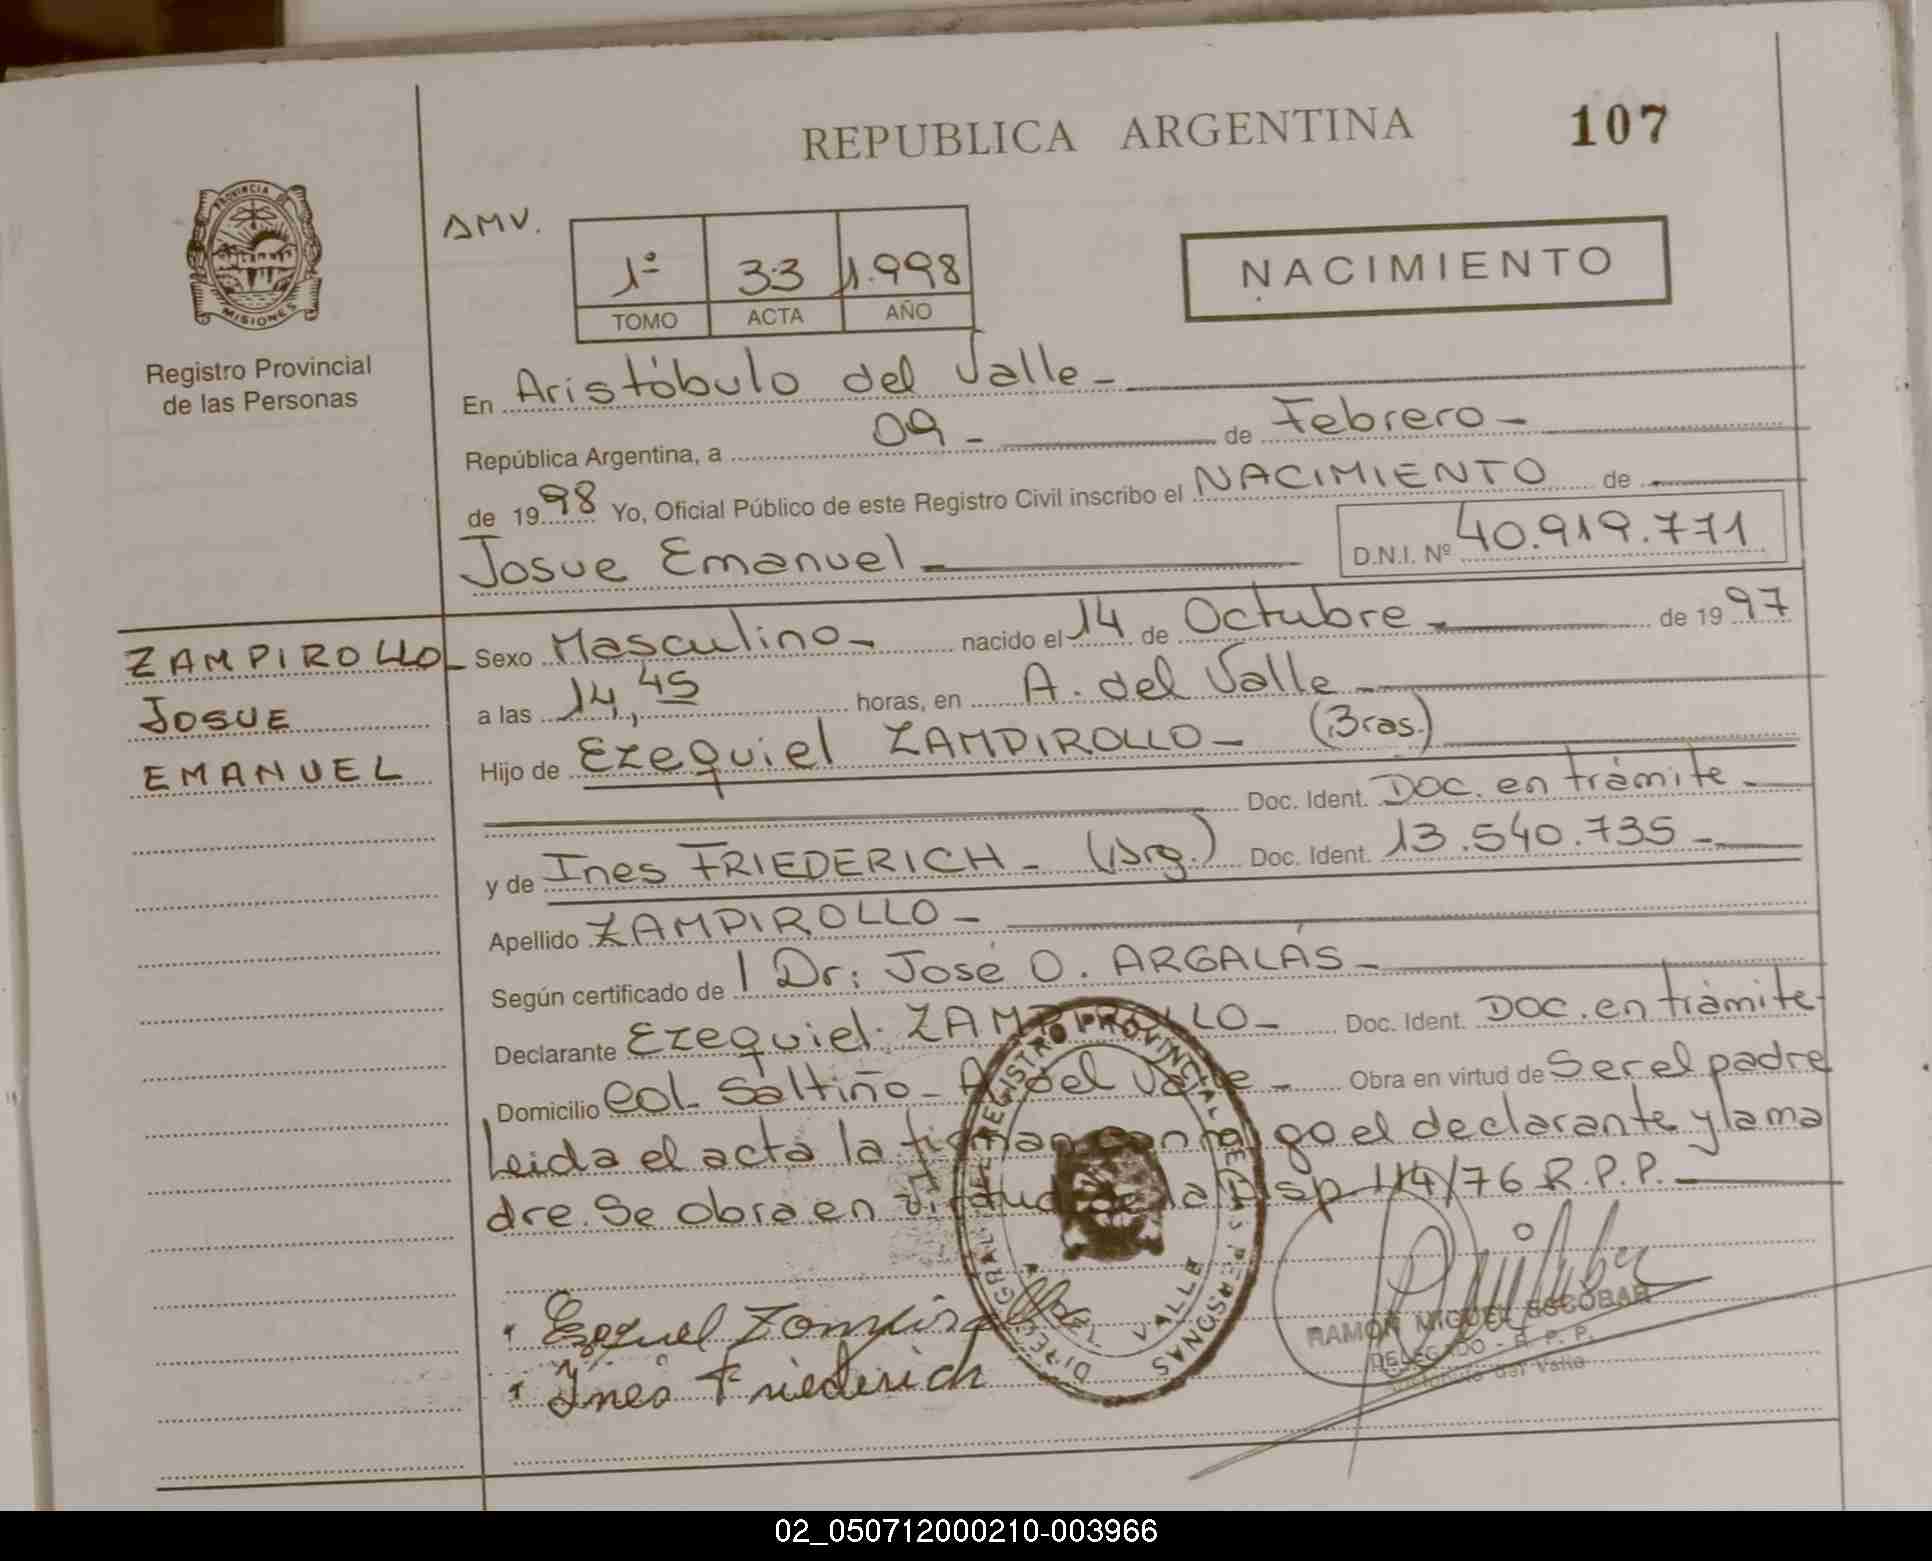 REPUBLICA ARGENTINA 107
PROVINCIA DE
MISIONES
Registro Provincial
de las Personas
AMV.
1º 33 1.998
TOMO ACTA AÑO
NACIMIENTO
En Aristóbulo del Valle-
República Argentina, a 09- de Febrero-
de 1998 Yo, Oficial Público de este Registro Civil inscribo el NACIMIENTO de
Josue Emanuel- D.N.I. Nº 40.919.771
ZAMPIROLLO
JOSUE
EMANUEL
Sexo Masculino- nacido el 14 de Octubre- de 1997
a las 14,45 horas, en A. del Valle-
Hijo de Ezequiel ZAMPIROLLO- (Bras.)
Doc. Ident. Doc. en trámite-
y de Ines FRIEDERICH- (Arg.) Doc. Ident. 13.540.735-
Apellido ZAMPIROLLO-
Según certificado de Dr: José O. ARGALÁS-
Declarante Ezequiel ZAMPIROLLO- Doc. Ident. Doc. en trámite-
Domicilio Col. Saltiño- A. del Valle- Obra en virtud de Ser el padre
Leida el acta la firman conmigo el declarante y la ma
dre. Se obra en virtud de la Disp. 114/76 R.P.P.-
DIREC. GRAL. DEL REGISTRO PROVINCIAL DE LAS PERSONAS
VALLE
Ezequiel Zampirollo
Ines Friederich
RAMON MIGUEL ESCOBAR
DELEGADO - R. P. P.
Aristóbulo del Valle
02_050712000210-003966